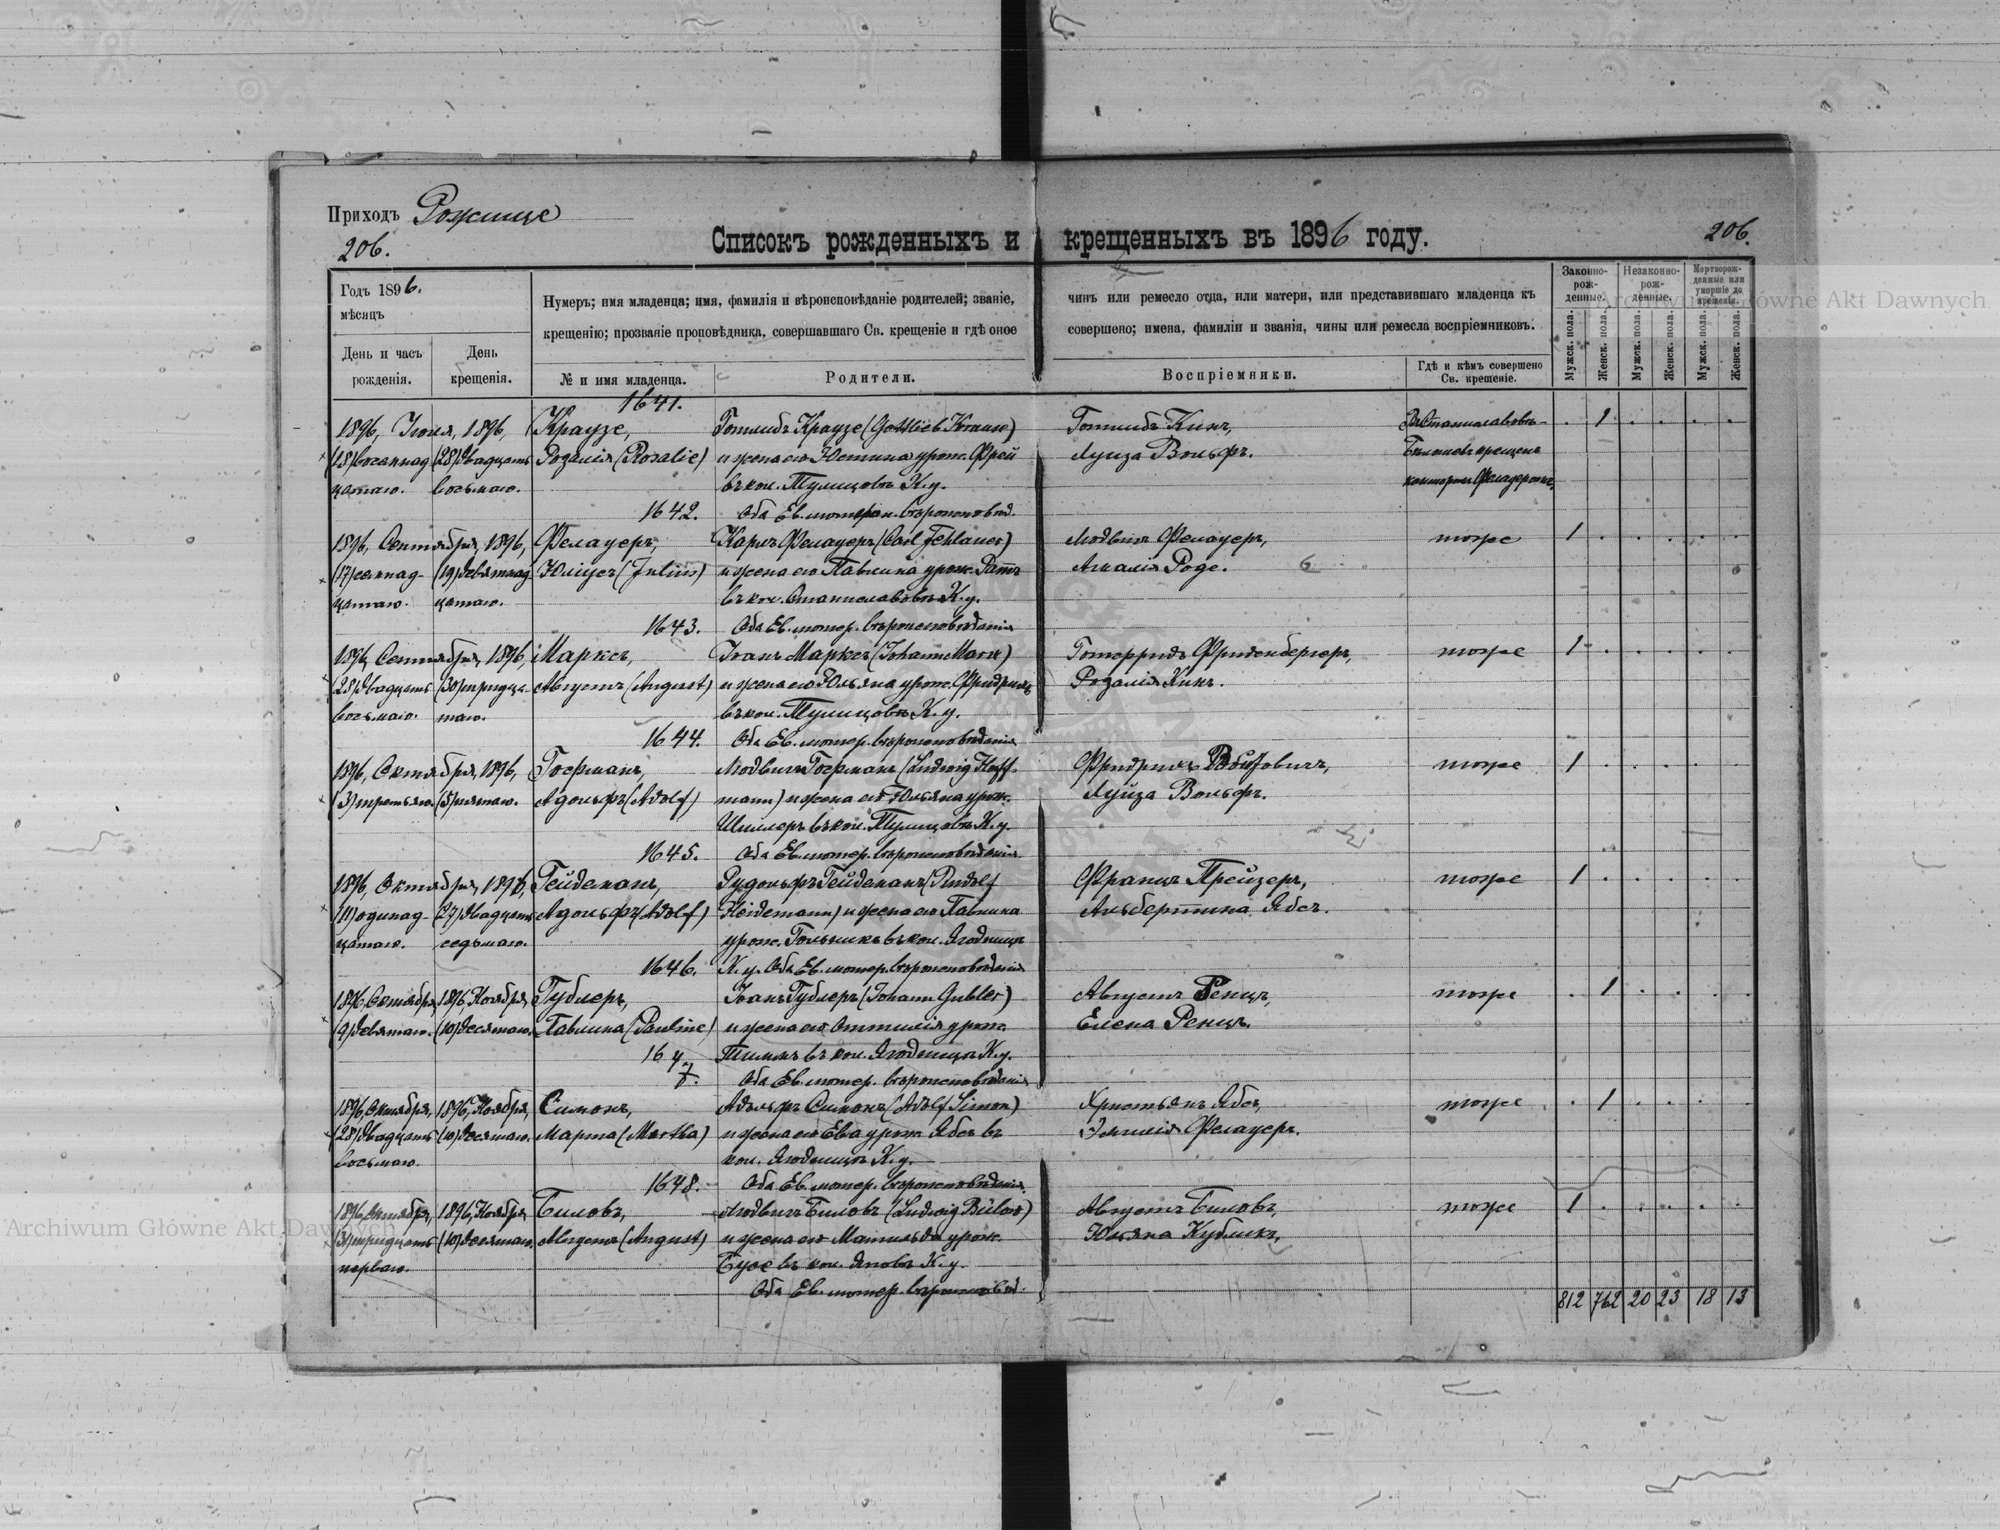 Приходъ Рожище
206.
206.
Списокъ рожденныхъ и крещенныхъ въ 1896 году.
Годъ 1896.
мѣсяцъ
День и часъ рожденія.
День крещенія.
Нумеръ; имя младенца; имя, фамилія и вѣроисповѣданіе родителей; званіе, чинъ или ремесло отца, или матери, или представившаго младенца къ
крещенію; прозваніе проповѣдника, совершавшаго Св. крещеніе и гдѣ оное совершено; имена, фамиліи и званія, чины или ремесла воспріемниковъ.
№ и имя младенца.
Родители.
Воспріемники.
Гдѣ и кѣмъ совершено Св. крещеніе.
Законно-рож-денные.
Незаконно-рож-денные.
Мертворож-денные или умершіе до крещенія.
Мужск. пола.
Женск. пола.
Мужск. пола.
Женск. пола.
Мужск. пола.
Женск. пола.
1641.
1896, Іюля, 1896, Краузе, Готлибъ Краузе (Gottlieb Krause) Готлибъ Кинъ, 1
(18) восемнад (28) двадцать Розалія (Rosalie) и жена его Юстина урож. Фрей Луиза Вольфъ.
цатаго. восьмаго. въ кол. Тулицовъ К.у.
1642. Оба Ев. лютеран. вѣроисповѣд.
1896, Сентября, 1896, Фелауеръ, Карлъ Фелауеръ (Carl Fehlauer) Людвигъ Фелауеръ, тоже 1
(17) семнад- (19) девятнад Юліусъ (Julius) и жена его Павлина урож. Ратъ Амалія Роде.
цатаго. цатаго. въ кол. Станиславовъ К.у.
1643. Оба Ев. лютер. вѣроисповѣданія
1896, Сентября, 1896, Марксъ, Іоанъ Марксъ (Johann Marx) Готфридъ Фриденбергеръ, тоже 1
(28) двадцать (30) тридца- Августъ (August) и жена его Юльяна урож. Фридрихъ Розалія Кинъ.
восьмаго. таго. въ кол. Тулицовъ К.у.
1644. Оба Ев. лютер. вѣроисповѣданія
1896, Октября, 1896, Гофманъ, Людвигъ Гофманъ (Ludwig Hoff- Фридрихъ тоже 1
(3) третьяго. (5) пятаго. Адольфъ (Adolf) mann) и жена его Юльяна урож. Луиза Вольфъ.
Шиллеръ въ кол. Тулицовъ К.у.
1645. Оба Ев. лютер. вѣроисповѣданія.
1896, Октября, 1896, Гейдеманъ, Рудольфъ Гейдеманъ (Rudolf Францъ Прейзеръ, тоже 1
(11) одинад- (27) двадцать Адольфъ (Adolf) Heidemann) и жена его Павлина Альбертина Ябсъ.
цатаго. седьмаго. урож. въ кол. Ягодницъ
1646. К.у. Оба Ев. лютер. вѣроисповѣданія
1896, Октября, 1896, Ноября, Гублеръ, Іоанъ Гублеръ (Johann Gubler) Августъ Ренцъ, тоже 1
(9) девятаго. (10) десятаго. Павлина (Pauline) и жена его Оттилія урож. Елена Ренцъ.
1647. въ кол. Ягодницъ К.у.
Оба Ев. лютер. вѣроисповѣданія
1896, Октября, 1896, Ноября, Симонъ, Адольфъ Симонъ (Adolf Simon) Христьянъ Ябсъ, тоже 1
(28) двадцать (10) десятаго. Марта (Martha) и жена его Ева урож. Ябсъ въ Эмилія Фелауеръ.
восьмаго. кол. Ягодницъ К.у.
1648. Оба Ев. лютер. вѣроисповѣданія.
1896, Октября, 1896, Ноября, Биловъ, Людвигъ Биловъ (Ludwig Bülow) Августъ Биловъ, тоже 1
(31) тридцать (10) десятаго. Августъ (August) и жена его Матильда урож. Юльяна Кубликъ.
перваго. Бусе въ кол. Яновъ К.у.
Оба Ев. лютер. вѣроисповѣд.
812 762 20 23 18 13
Archiwum Główne Akt Dawnych
Archiwum Główne Akt Dawnych